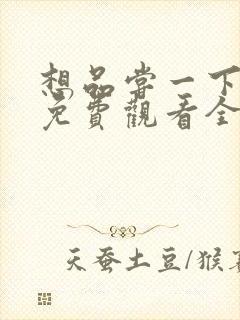 想品尝一下
免費觀看全
天蚕土豆/猴